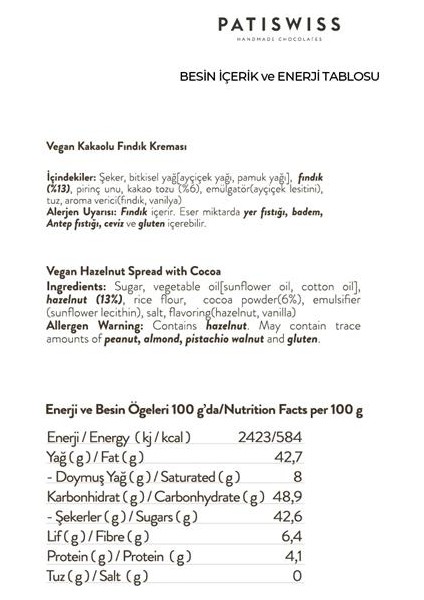 PATISWISS
HANDMADE CHOCOLATES
BESİN İÇERİK ve ENERJİ TABLOSU
Vegan Kakaolu Fındık Kreması
İçindekiler: Şeker, bitkisel yağ[ayçiçek yağı, pamuk yağı], fındık
(%13), pirinç unu, kakao tozu (%6), emülgatör(ayçiçek lesitini),
tuz, aroma verici(fındık, vanilya)
Alerjen Uyarısı: Fındık içerir. Eser miktarda yer fıstığı, badem,
Antep fıstığı, ceviz ve gluten içerebilir.
Vegan Hazelnut Spread with Cocoa
Ingredients: Sugar, vegetable oil[sunflower oil, cotton oil],
hazelnut (13%), rice flour, cocoa powder(6%), emulsifier
(sunflower lecithin), salt, flavoring(hazelnut, vanilla)
Allergen Warning: Contains hazelnut. May contain trace
amounts of peanut, almond, pistachio walnut and gluten.
Enerji ve Besin Ögeleri 100 g'da/Nutrition Facts per 100 g
Enerji / Energy ( kj / kcal ) 2423/584
Yağ ( g ) / Fat ( g ) 42,7
- Doymuş Yağ ( g ) / Saturated ( g ) 8
Karbonhidrat ( g ) / Carbonhydrate ( g ) 48,9
- Şekerler ( g ) / Sugars ( g ) 42,6
Lif ( g ) / Fibre ( g ) 6,4
Protein ( g ) / Protein ( g ) 4,1
Tuz ( g ) / Salt ( g ) 0